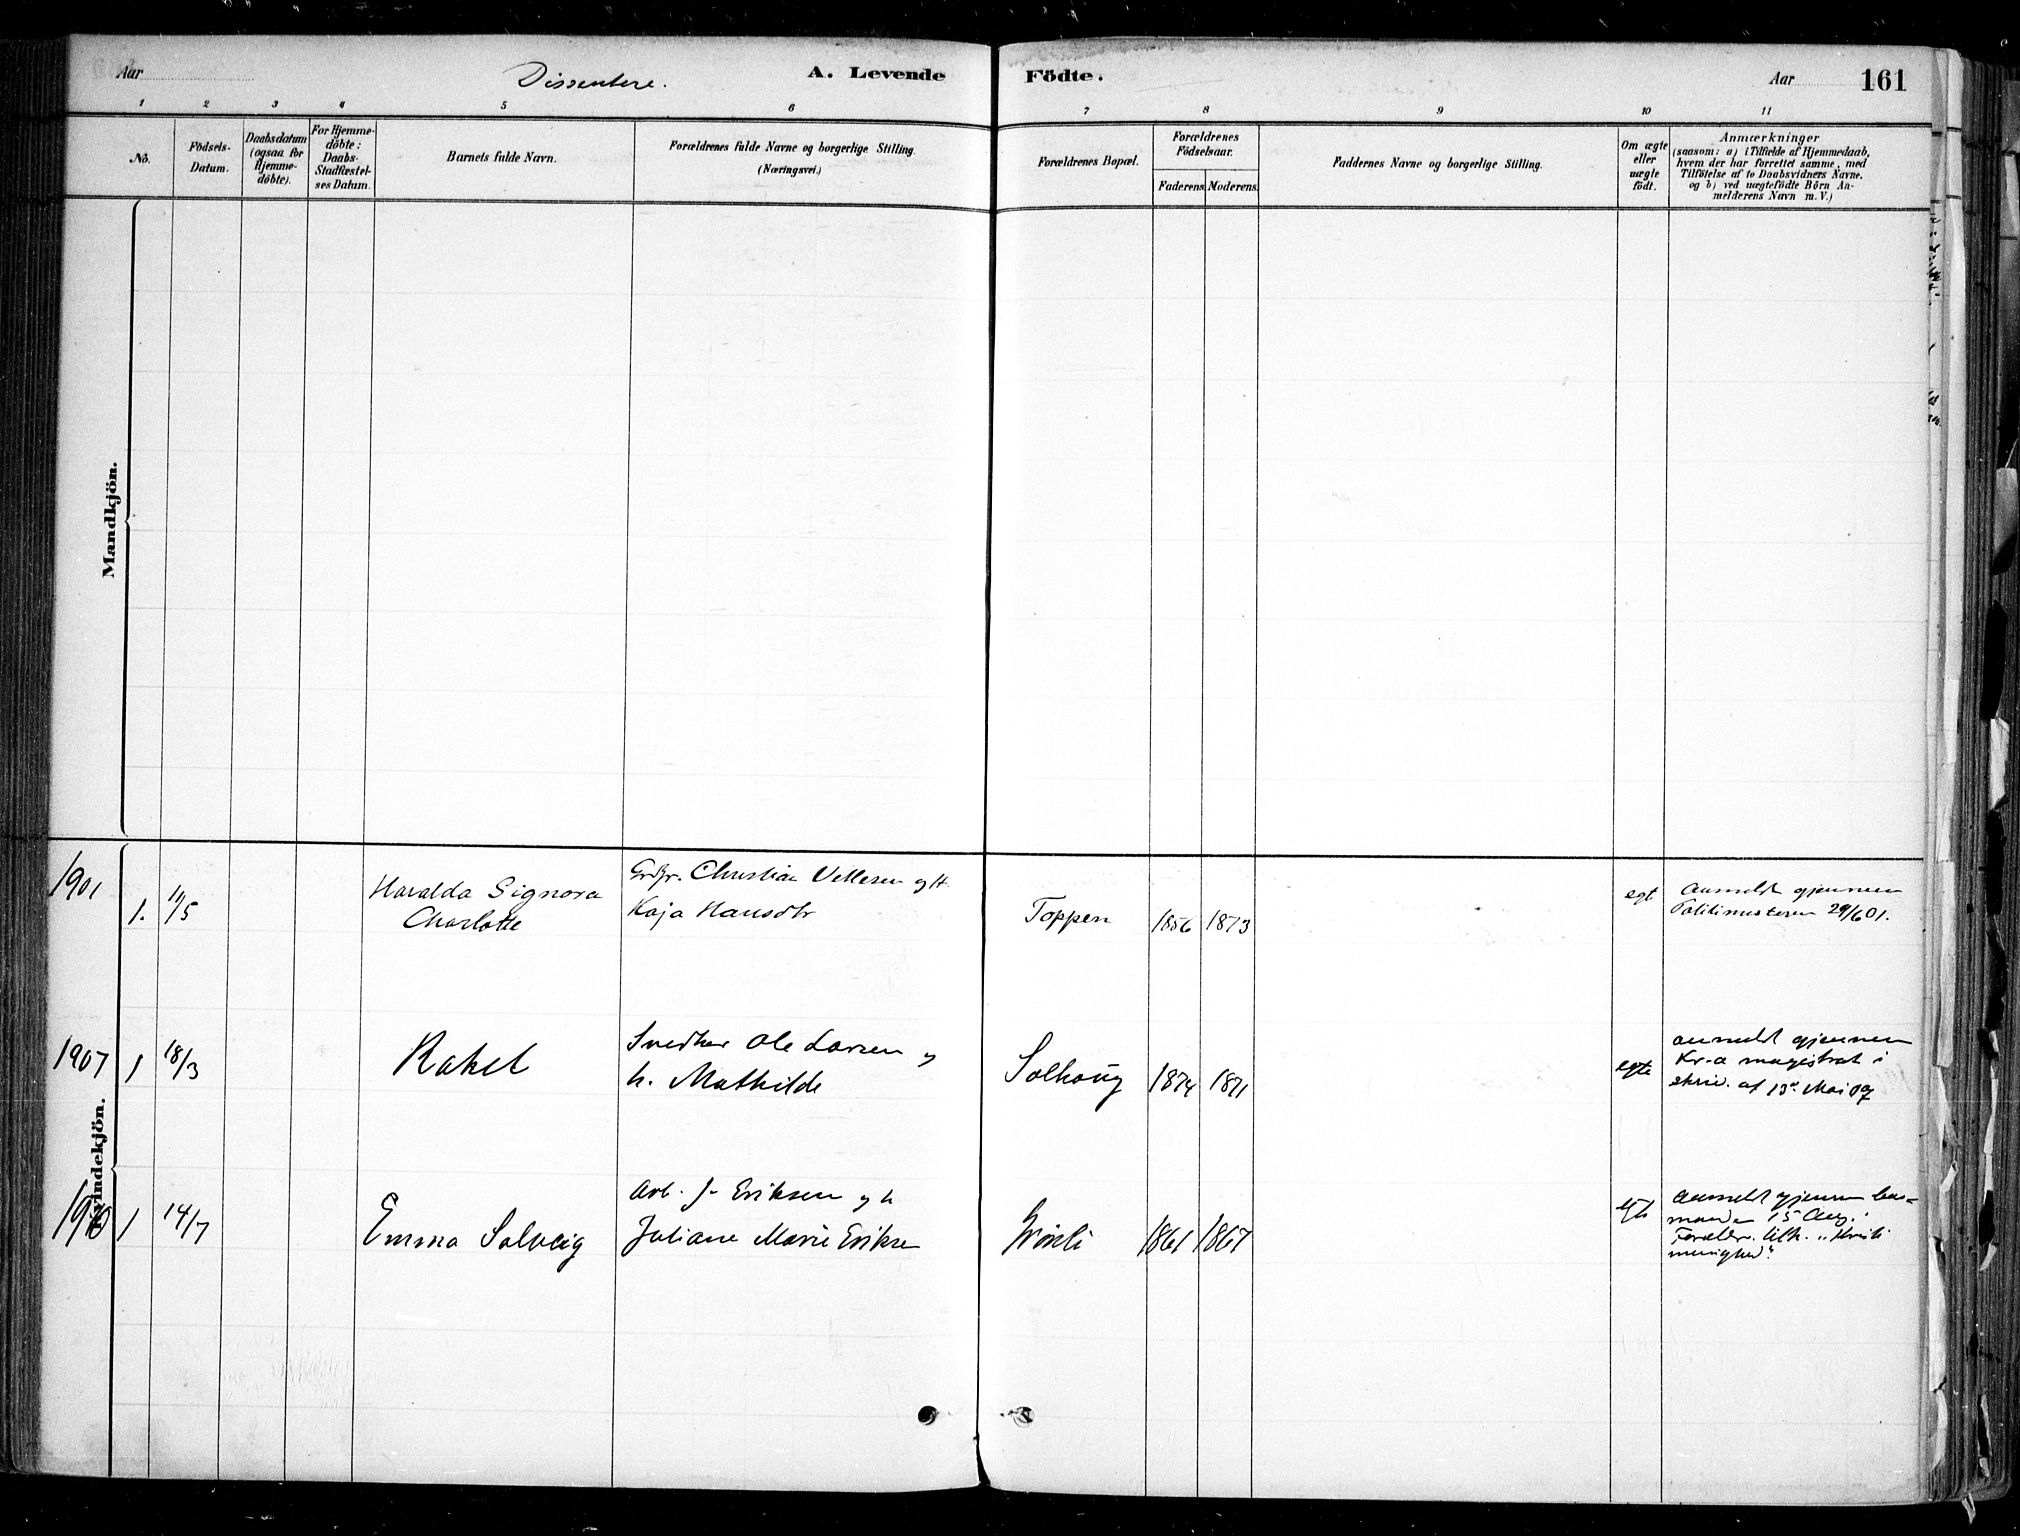 Aar Dissentere. A. Levende Födte. Aar 161
1 2 3 4 5 6 7 8 9 10 11
No.
Födsels-
Datum.
Daabsdatum
(ogsaa for
Hjemme-
döbte).
For Hjemme-
döbte:
Daabs-
Stadfæstel-
ses Datum.
Barnets fulde Navn.
Forældrenes fulde Navne og borgerlige Stilling.
(Næringsvei.)
Forældrenes Bopæl.
Forældrenes
Födselsaar.
Faderens. Moderens.
Faddernes Navne og borgerlige Stilling.
Om ægte
eller
uægte
födt.
Anmærkninger
(saasom: a) i Tilfælde af Hjemmedaab,
hvem der har forrettet samme, med
Tilföielse af to Daabsvidners Navne.
og b) ved uægtefödte Börn An-
melderens Navn m. V.)
Mandkjön.
Kvindekjön.
1901
1. 11/5
Haralda Signora
Charlotte
Christian Vettesen og H.
Kaja Hansdtr
Toppen 1856 1873
egt
Anmeldt gjennem
Politimesteren 29/6 01.
1907
1 18/3
Rakel
Snedker Ole Larsen og
h. Mathilde
Solhaug 1874 1871
egte
anmeldt gjennem
Kr-a magistrat i
skriv. af 13de Mai 07
1910
1 14/7
Emma Solveig
Arb. J. Eriksen og h
Juliane Marie Eriksen
1861 1867
egte
Anmeldt gjennem
15 Aug.
menighed".